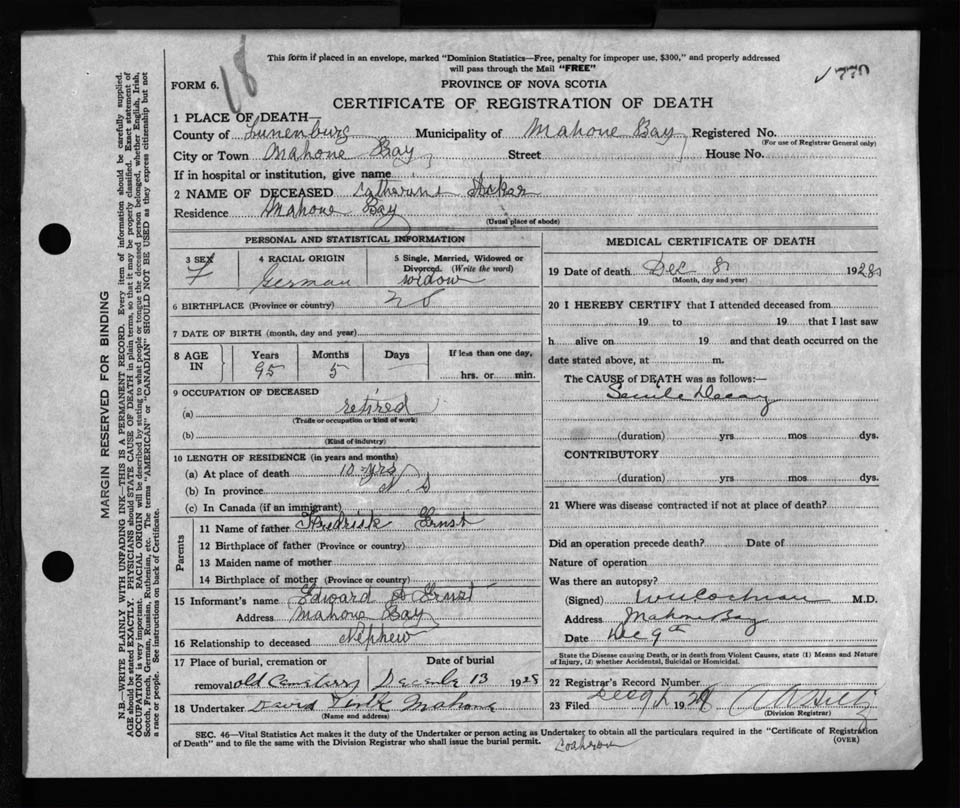 This form if placed in an envelope, marked "Dominion Statistics—Free, penalty for improper use, $300," and properly addressed
will pass through the Mail "FREE"
18
✓ 770
FORM 6.
PROVINCE OF NOVA SCOTIA
CERTIFICATE OF REGISTRATION OF DEATH
1 PLACE OF DEATH—
County of Lunenburg Municipality of Mahone Bay Registered No.
(For use of Registrar General only)
City or Town Mahone Bay Street House No.
If in hospital or institution, give name
2 NAME OF DECEASED Catharine
Residence Mahone Bay
(Usual place of abode)
PERSONAL AND STATISTICAL INFORMATION
3 SEX 4 RACIAL ORIGIN 5 Single, Married, Widowed or
Divorced. (Write the word)
F German widow
6 BIRTHPLACE (Province or country) N S
7 DATE OF BIRTH (month, day and year)
8 AGE IN Years Months Days If less than one day,
95 5 hrs. or min.
9 OCCUPATION OF DECEASED
(a) retired
(Trade or occupation or kind of work)
(b)
(Kind of industry)
10 LENGTH OF RESIDENCE (in years and months)
(a) At place of death 10 yrs
(b) In province N S
(c) In Canada (if an immigrant)
Parents
11 Name of father Fredrick Ernst
12 Birthplace of father (Province or country)
13 Maiden name of mother
14 Birthplace of mother (Province or country)
15 Informant's name Edward Ernst
Address Mahone Bay
16 Relationship to deceased Nephew
17 Place of burial, cremation or Date of burial
removal old Cemetery 13 1928
18 Undertaker David Mahone
(Name and address)
MEDICAL CERTIFICATE OF DEATH
19 Date of death Dec 8 1928
(Month, day and year)
20 I HEREBY CERTIFY that I attended deceased from
19 to 19 that I last saw
h alive on 19 and that death occurred on the
date stated above, at m.
The CAUSE of DEATH was as follows:—
Senile Decay
(duration) yrs mos dys.
CONTRIBUTORY
(duration) yrs mos dys.
21 Where was disease contracted if not at place of death?
Did an operation precede death? Date of
Nature of operation
Was there an autopsy?
(Signed) Cochran M.D.
Address Mahone Bay
Date Dec 9th
State the Disease causing Death, or in death from Violent Causes, state (1) Means and Nature
of Injury, (2) whether Accidental, Suicidal or Homicidal.
22 Registrar's Record Number
23 Filed Dec 9 1928
(Division Registrar)
SEC. 46—Vital Statistics Act makes it the duty of the Undertaker or person acting as Undertaker to obtain all the particulars required in the "Certificate of Registration
of Death" and to file the same with the Division Registrar who shall issue the burial permit.
(OVER)
MARGIN RESERVED FOR BINDING
N.B.—WRITE PLAINLY WITH UNFADING INK—THIS IS A PERMANENT RECORD. Every item of information should be carefully supplied.
AGE should be stated EXACTLY. PHYSICIANS should STATE CAUSE OF DEATH in plain terms, so that it may be properly classified. Exact statement of
OCCUPATION is very important. RACIAL ORIGIN will be described by stating to what people or tongue the deceased person belonged, whether English, Irish,
Scotch, French, German, Russian, Ruthenian, etc. The terms "AMERICAN" or "CANADIAN" SHOULD NOT BE USED as they express citizenship but not
a race or people. See instructions on back of Certificate.